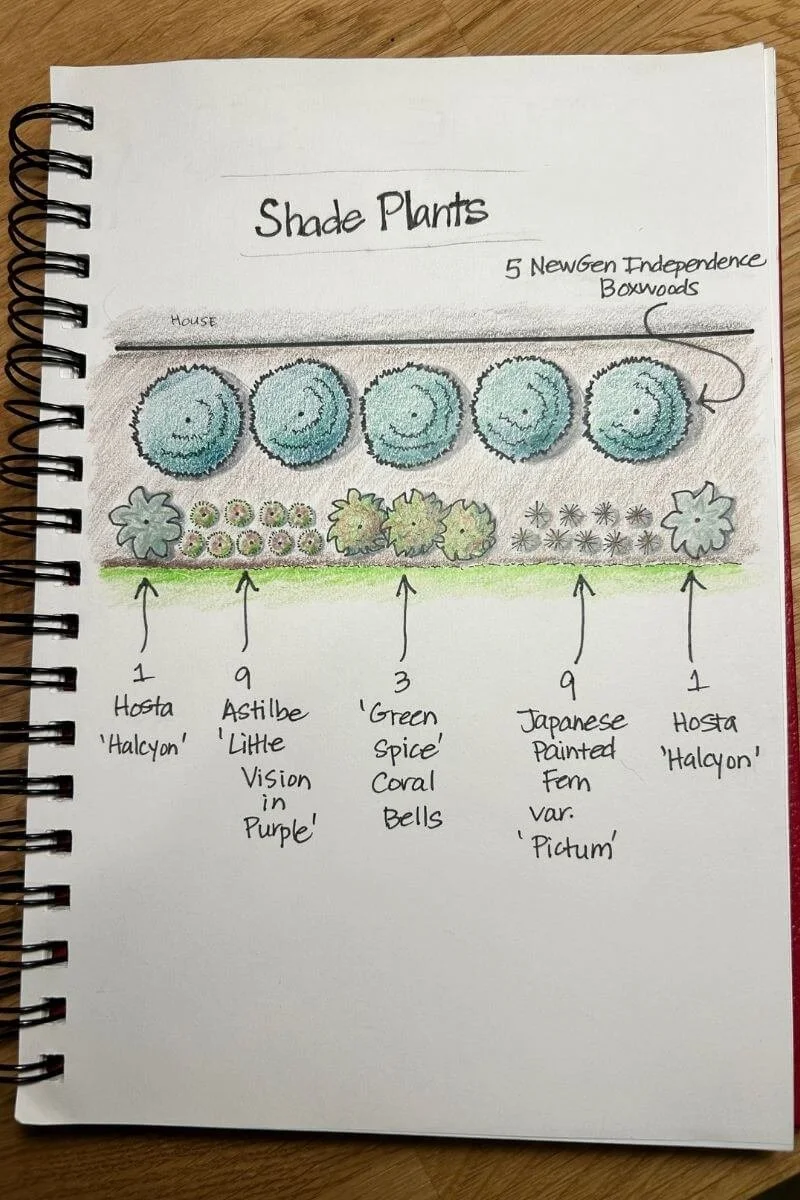 Shade Plants
5 NewGen Independence
Boxwoods
HOUSE
1
Hosta
'Halcyon'
9
Astilbe
'Little
Vision
in
Purple'
3
'Green
Spice'
Coral
Bells
9
Japanese
Painted
Fern
var.
'Pictum'
1
Hosta
'Halcyon'